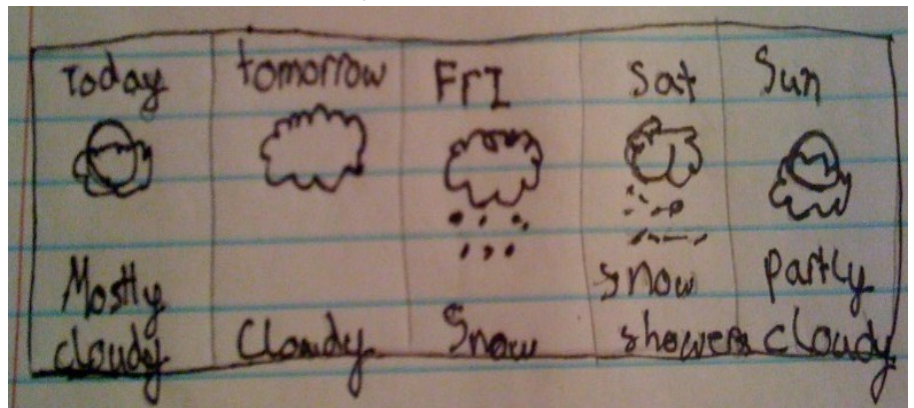 Today
tomorrow
FrI
Sat
Sun
Mostly
cloudy
Cloudy
Snow
snow
showers
partly
cloudy